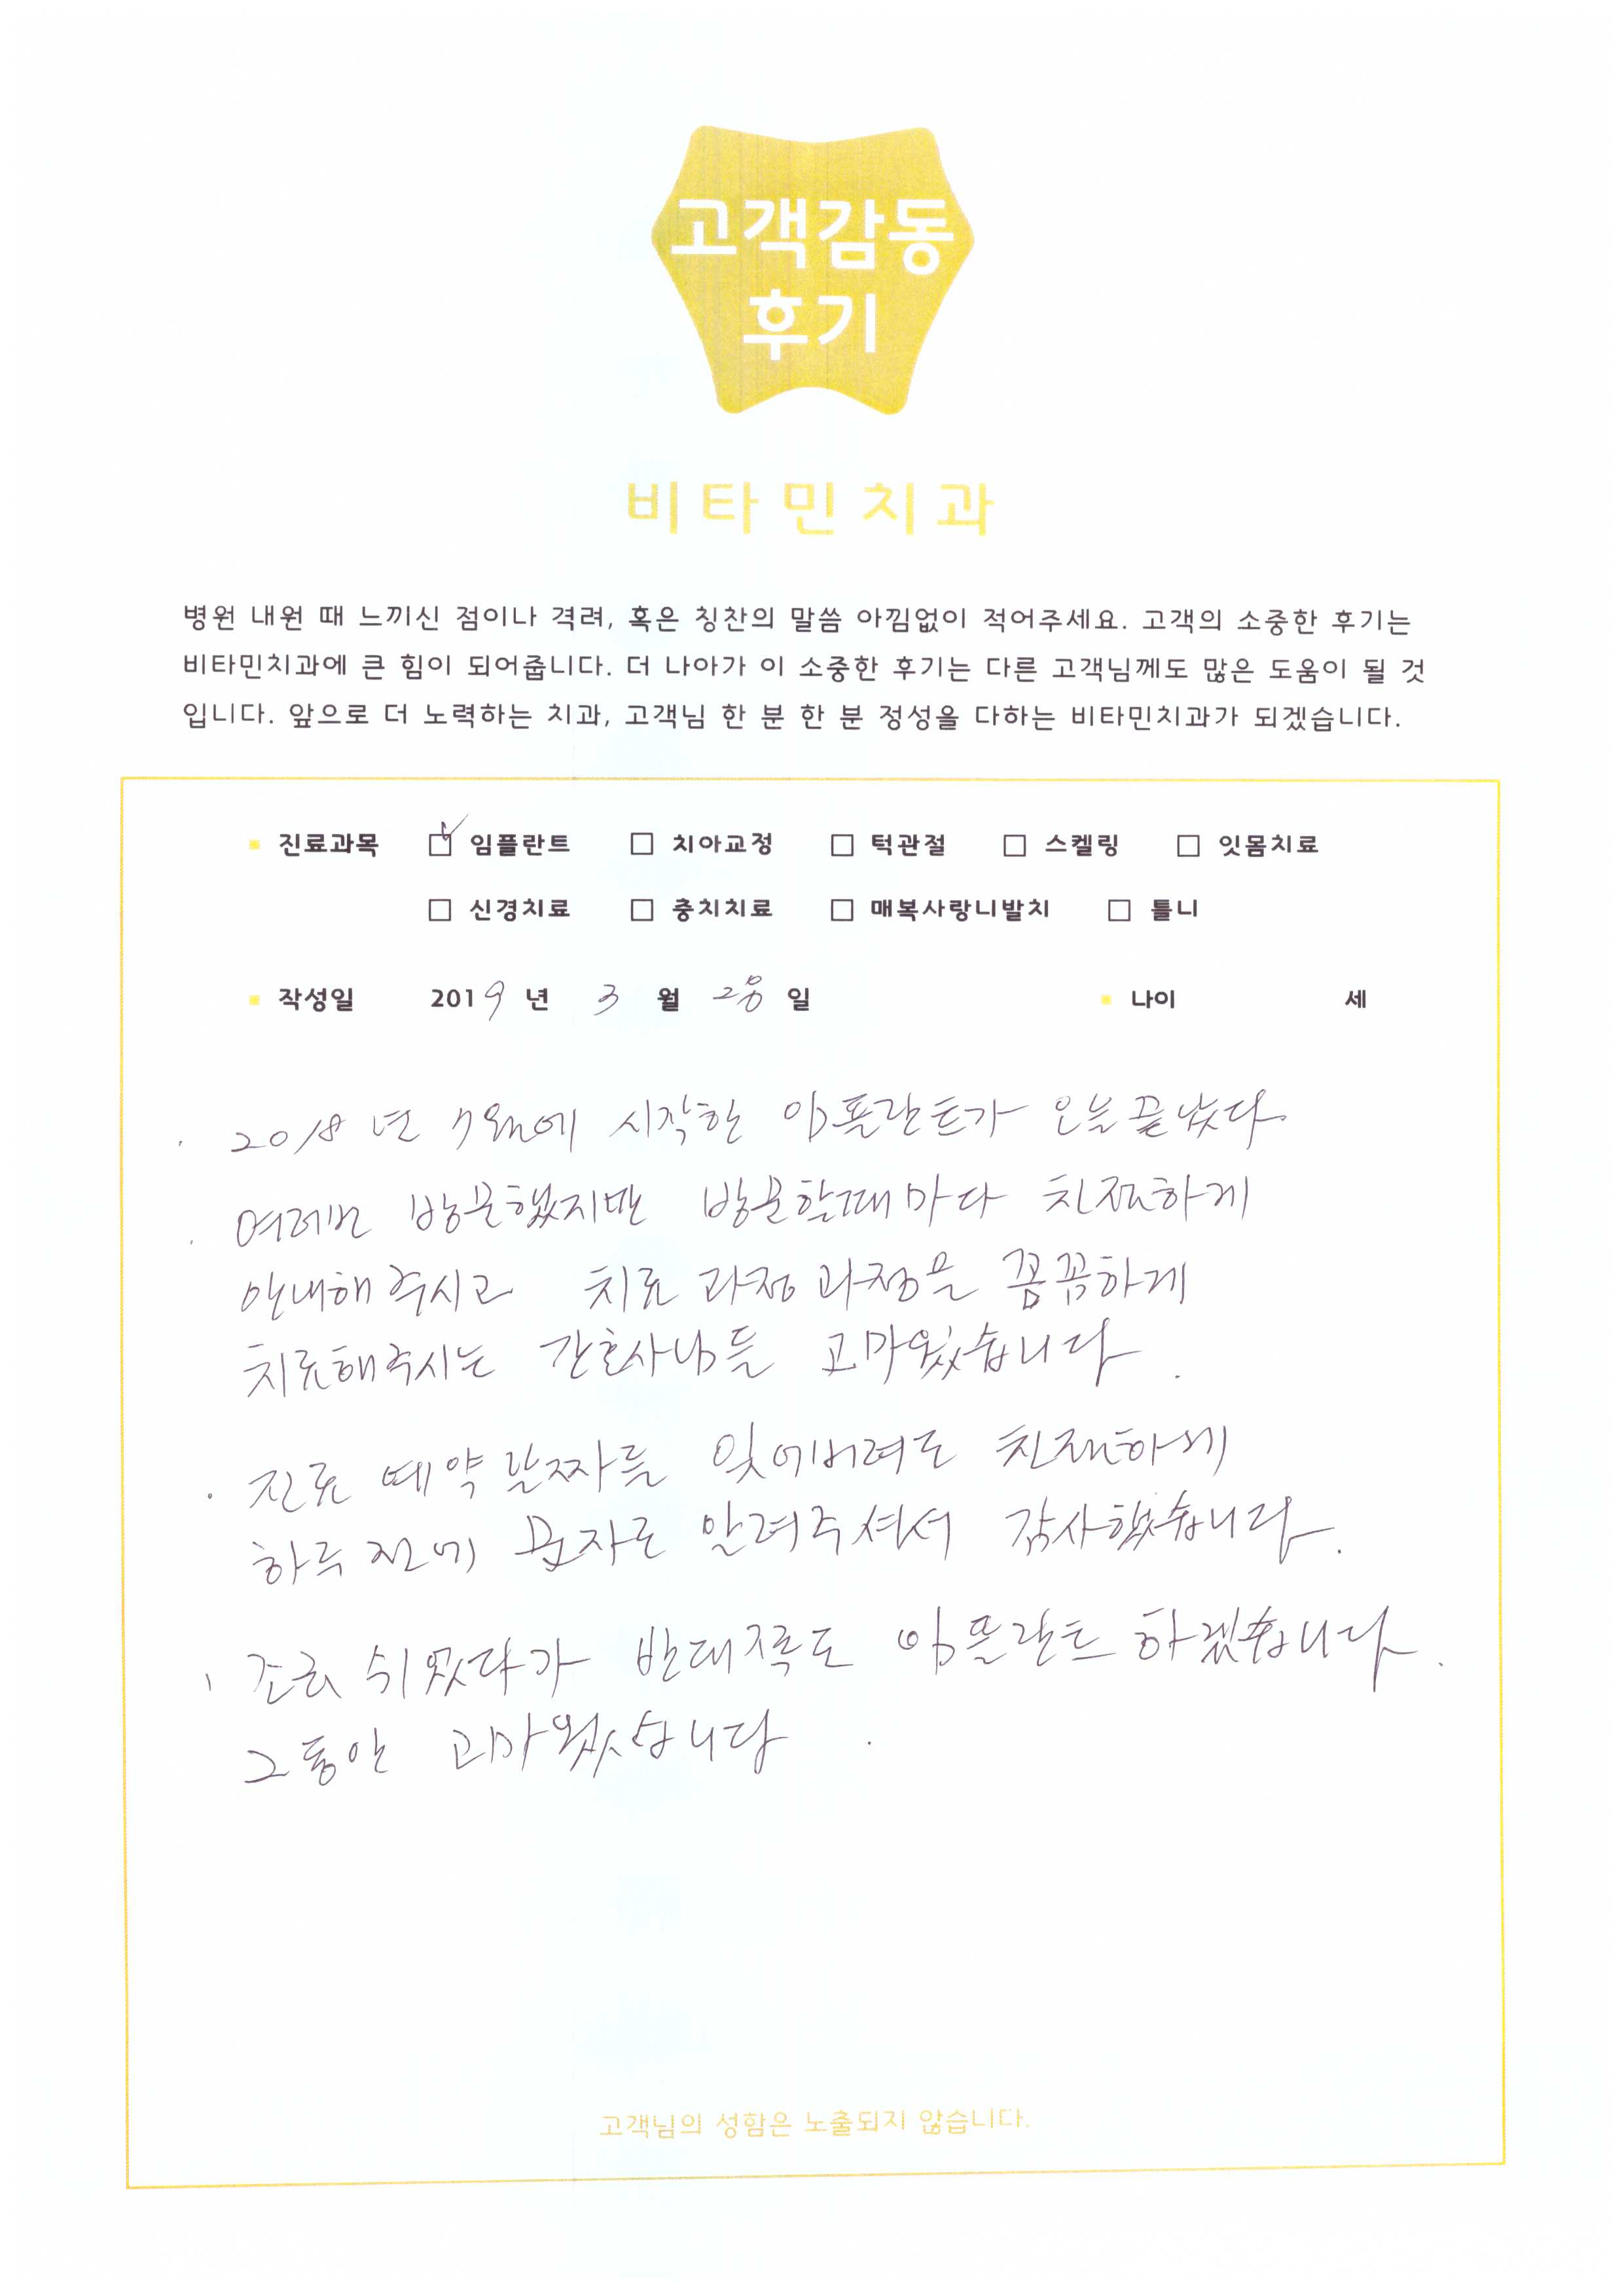 고객감동
후기
비타민치과
병원 내원 때 느끼신 점이나 격려, 혹은 칭찬의 말씀 아낌없이 적어주세요. 고객의 소중한 후기는
비타민치과에 큰 힘이 되어줍니다. 더 나아가 이 소중한 후기는 다른 고객님께도 많은 도움이 될 것
입니다. 앞으로 더 노력하는 치과, 고객님 한 분 한 분 정성을 다하는 비타민치과가 되겠습니다.
진료과목 임플란트 치아교정 턱관절 스켈링 잇몸치료
신경치료 충치치료 매복사랑니발치 틀니
작성일 2019 년 3 월 28 일 나이 세
· 2018 년 7월에 시작한 임플란트가 오늘 끝났다.
· 여러번 방문했지만 방문할때마다 친절하게
안내해 주시고 치료 과정 과정을 꼼꼼하게
치료해주시는 간호사님들 고마웠습니다.
· 진료 예약 날짜를 잊어버려도 친절하게
하루 전에 문자로 알려주셔서 감사했습니다.
· 조금 쉬었다가 반대쪽도 임플란트 하겠습니다.
그동안 고마웠습니다.
고객님의 성함은 노출되지 않습니다.